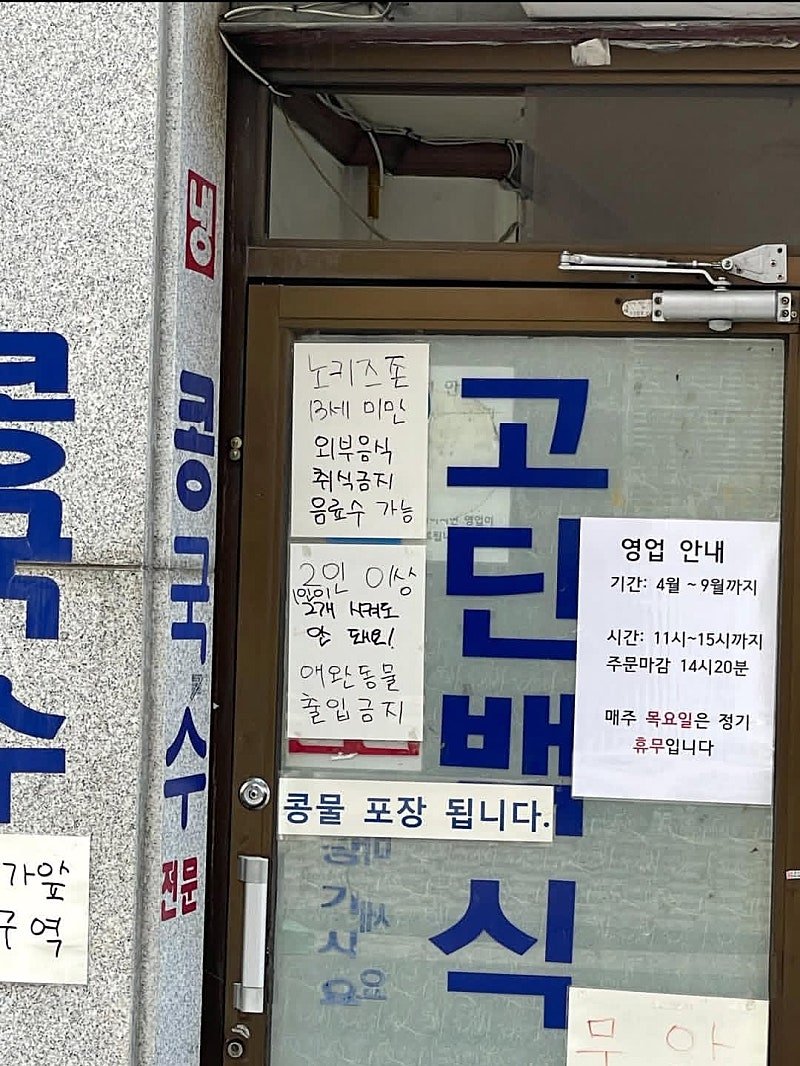 냉
콩국수
전문
콩국수
가앞
구역
노키즈존
13세 미만
외부음식
취식금지
음료수 가능
2인 이상
1인이
2개 시켜도
안 돼요!
애완동물
출입금지
고단백식
영업 안내
기간: 4월 ~ 9월까지
시간: 11시~15시까지
주문마감 14시20분
매주 목요일은 정기
휴무입니다
콩물 포장 됩니다.